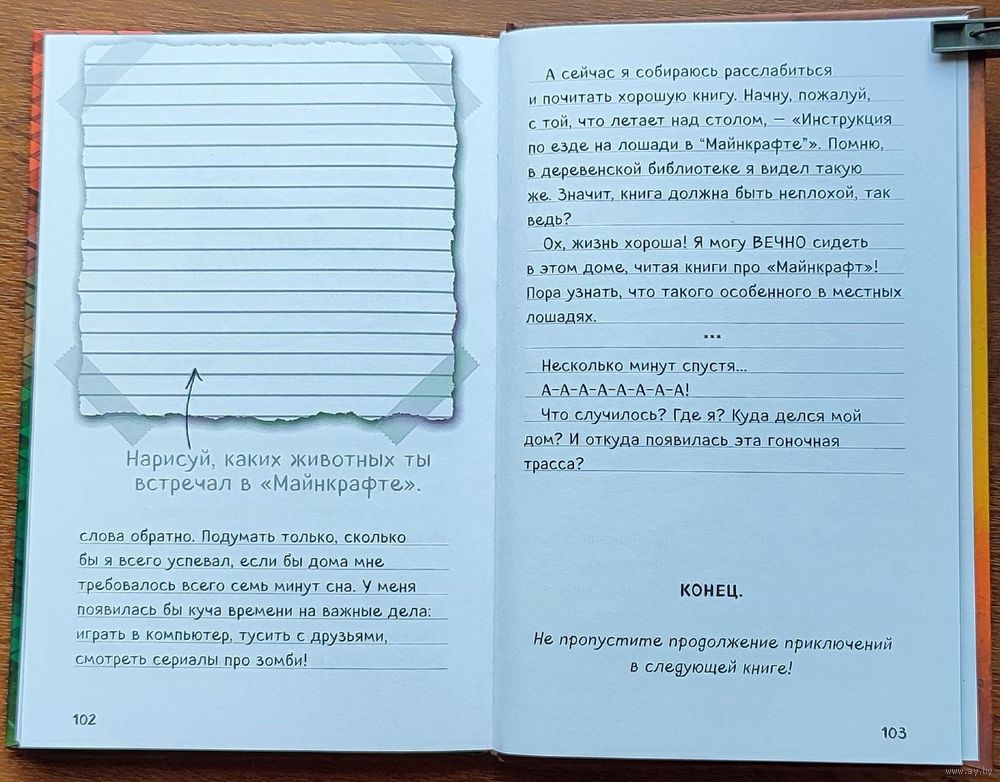 Нарисуй, каких животных ты
встречал в «Майнкрафте».
слова обратно. Подумать только, сколько
бы я всего успевал, если бы дома мне
требовалось всего семь минут сна. У меня
появилась бы куча времени на важные дела:
играть в компьютер, тусить с друзьями,
смотреть сериалы про зомби!
102
А сейчас я собираюсь расслабиться
и почитать хорошую книгу. Начну, пожалуй,
с той, что летает над столом, — «Инструкция
по езде на лошади в “Майнкрафте”». Помню,
в деревенской библиотеке я видел такую
же. Значит, книга должна быть неплохой, так
ведь?
Ох, жизнь хороша! Я могу ВЕЧНО сидеть
в этом доме, читая книги про «Майнкрафт»!
Пора узнать, что такого особенного в местных
лошадях.
***
Несколько минут спустя...
А-А-А-А-А-А-А-А!
Что случилось? Где я? Куда делся мой
дом? И откуда появилась эта гоночная
трасса?
КОНЕЦ.
Не пропустите продолжение приключений
в следующей книге!
103
www.ay.by